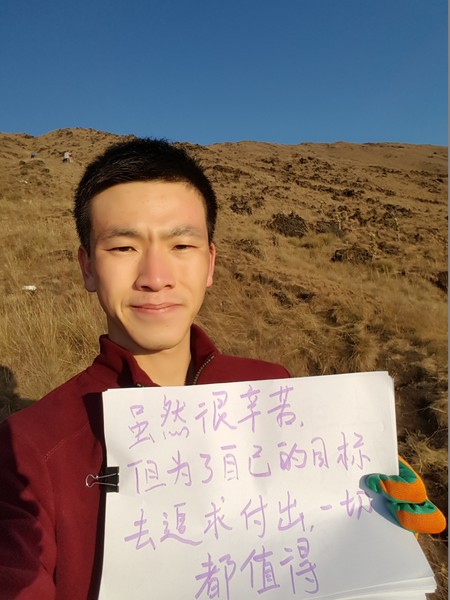 虽然很辛苦,
但为了自己的目标
去追求付出,一切
都值得